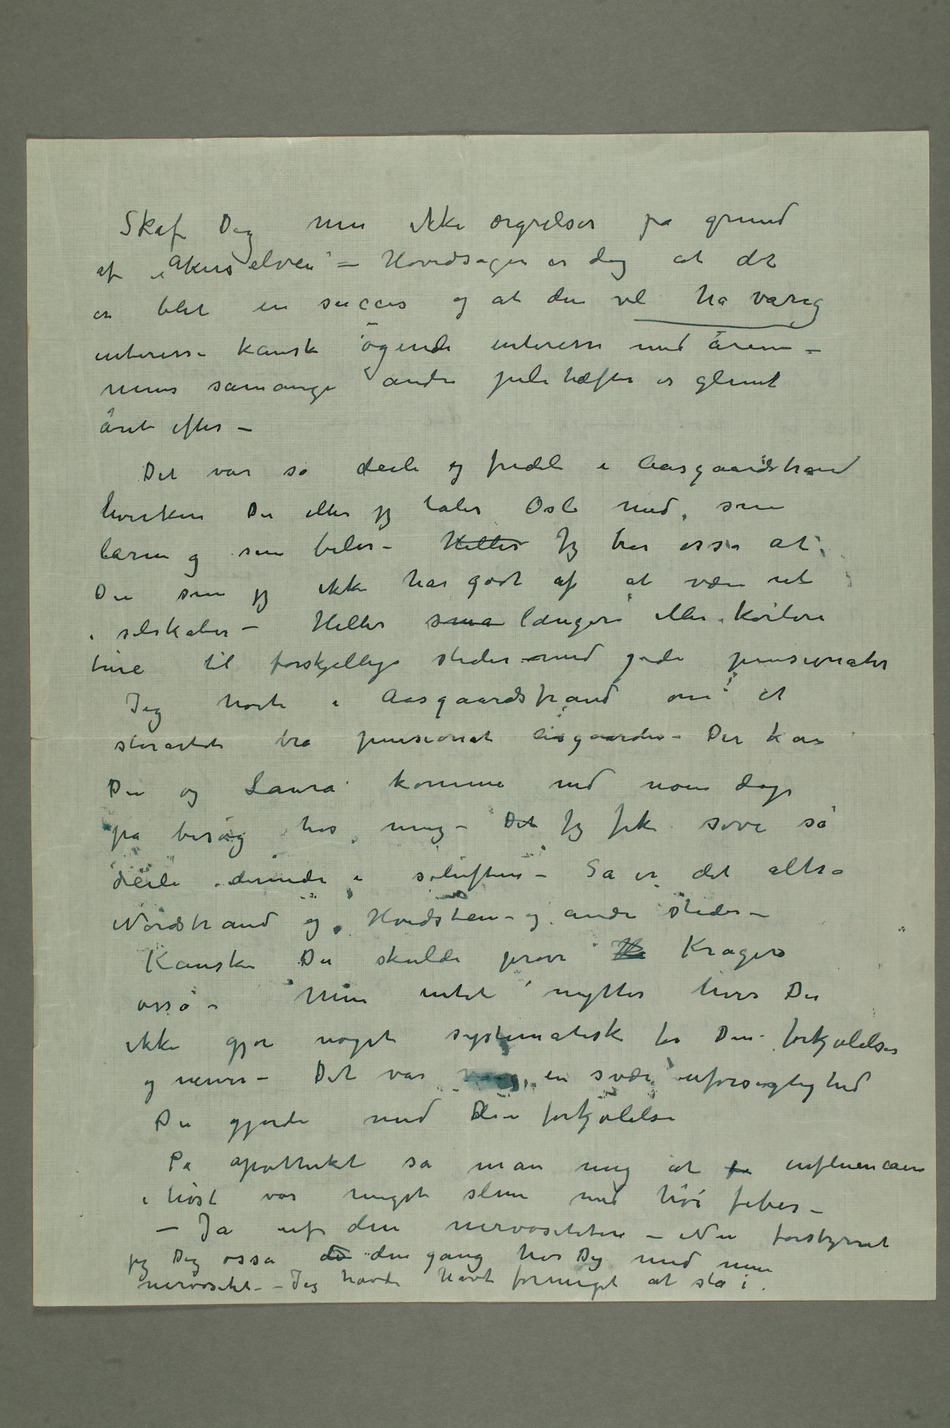 Skaf Dig nu ikke ærgrelser på grund
af „Akerselven" – Hovedsagen er dog at det
er blet en succes og at den vil ha varig
interesse kanske øgende interesse med årene –
mens såmange andre julehæfter er glemt
året efter –
Det var så deili og fredeli i Aasgaardstrand
hverken Du eller jeg tåler Oslo med sin
larm og sine biler – Heller Jeg tror osså at
Du som jeg ikke har godt af at være ute
i selskaber – Heller små længere eller kortere
ture til forskjellige steder med gode pensionater
Jeg hørte i Aasgaardstrand om et
storartet bra pensionat Åsgården – Der kan
Du og Laura komme ned noen dage
på besøg hos mig – Det Jeg fik sove så
deili dernede i søluften – Så er det altså
Nordstrand og Hvidsten – og andre steder –
Kanske Du skulde prøve Kragerø
osså – Men intet nytter hvis Du
ikke gjør noget systematisk for Din forkjølelse
og nerver – Det var en svær uforsigtighed
Du gjorde med Din forkjølelse
På apotheket sa man mig at influencaen
i høst var meget slem med høi feber –
– Ja uf den nervøsiteten – Nu forstyrret
jeg Dig osså den gang hos Dig med min
nervøsitet – Jeg havde havt formeget at stå i